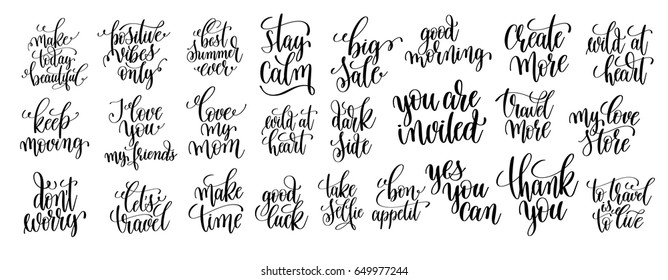 make
today
beautiful
positive
vibes
only
best
summer
ever
stay
calm
big
sale
good
morning
create
more
wild at
heart
keep
moving
I love
you
my friends
love
my
mom
wild at
heart
dark
side
you are
invited
travel
more
my love
store
don't
worry
let's
travel
make
time
good
luck
take
selfie
bon
appetit
yes
you
can
thank
you
to travel
is
to live
shutterstock.com · 649977244